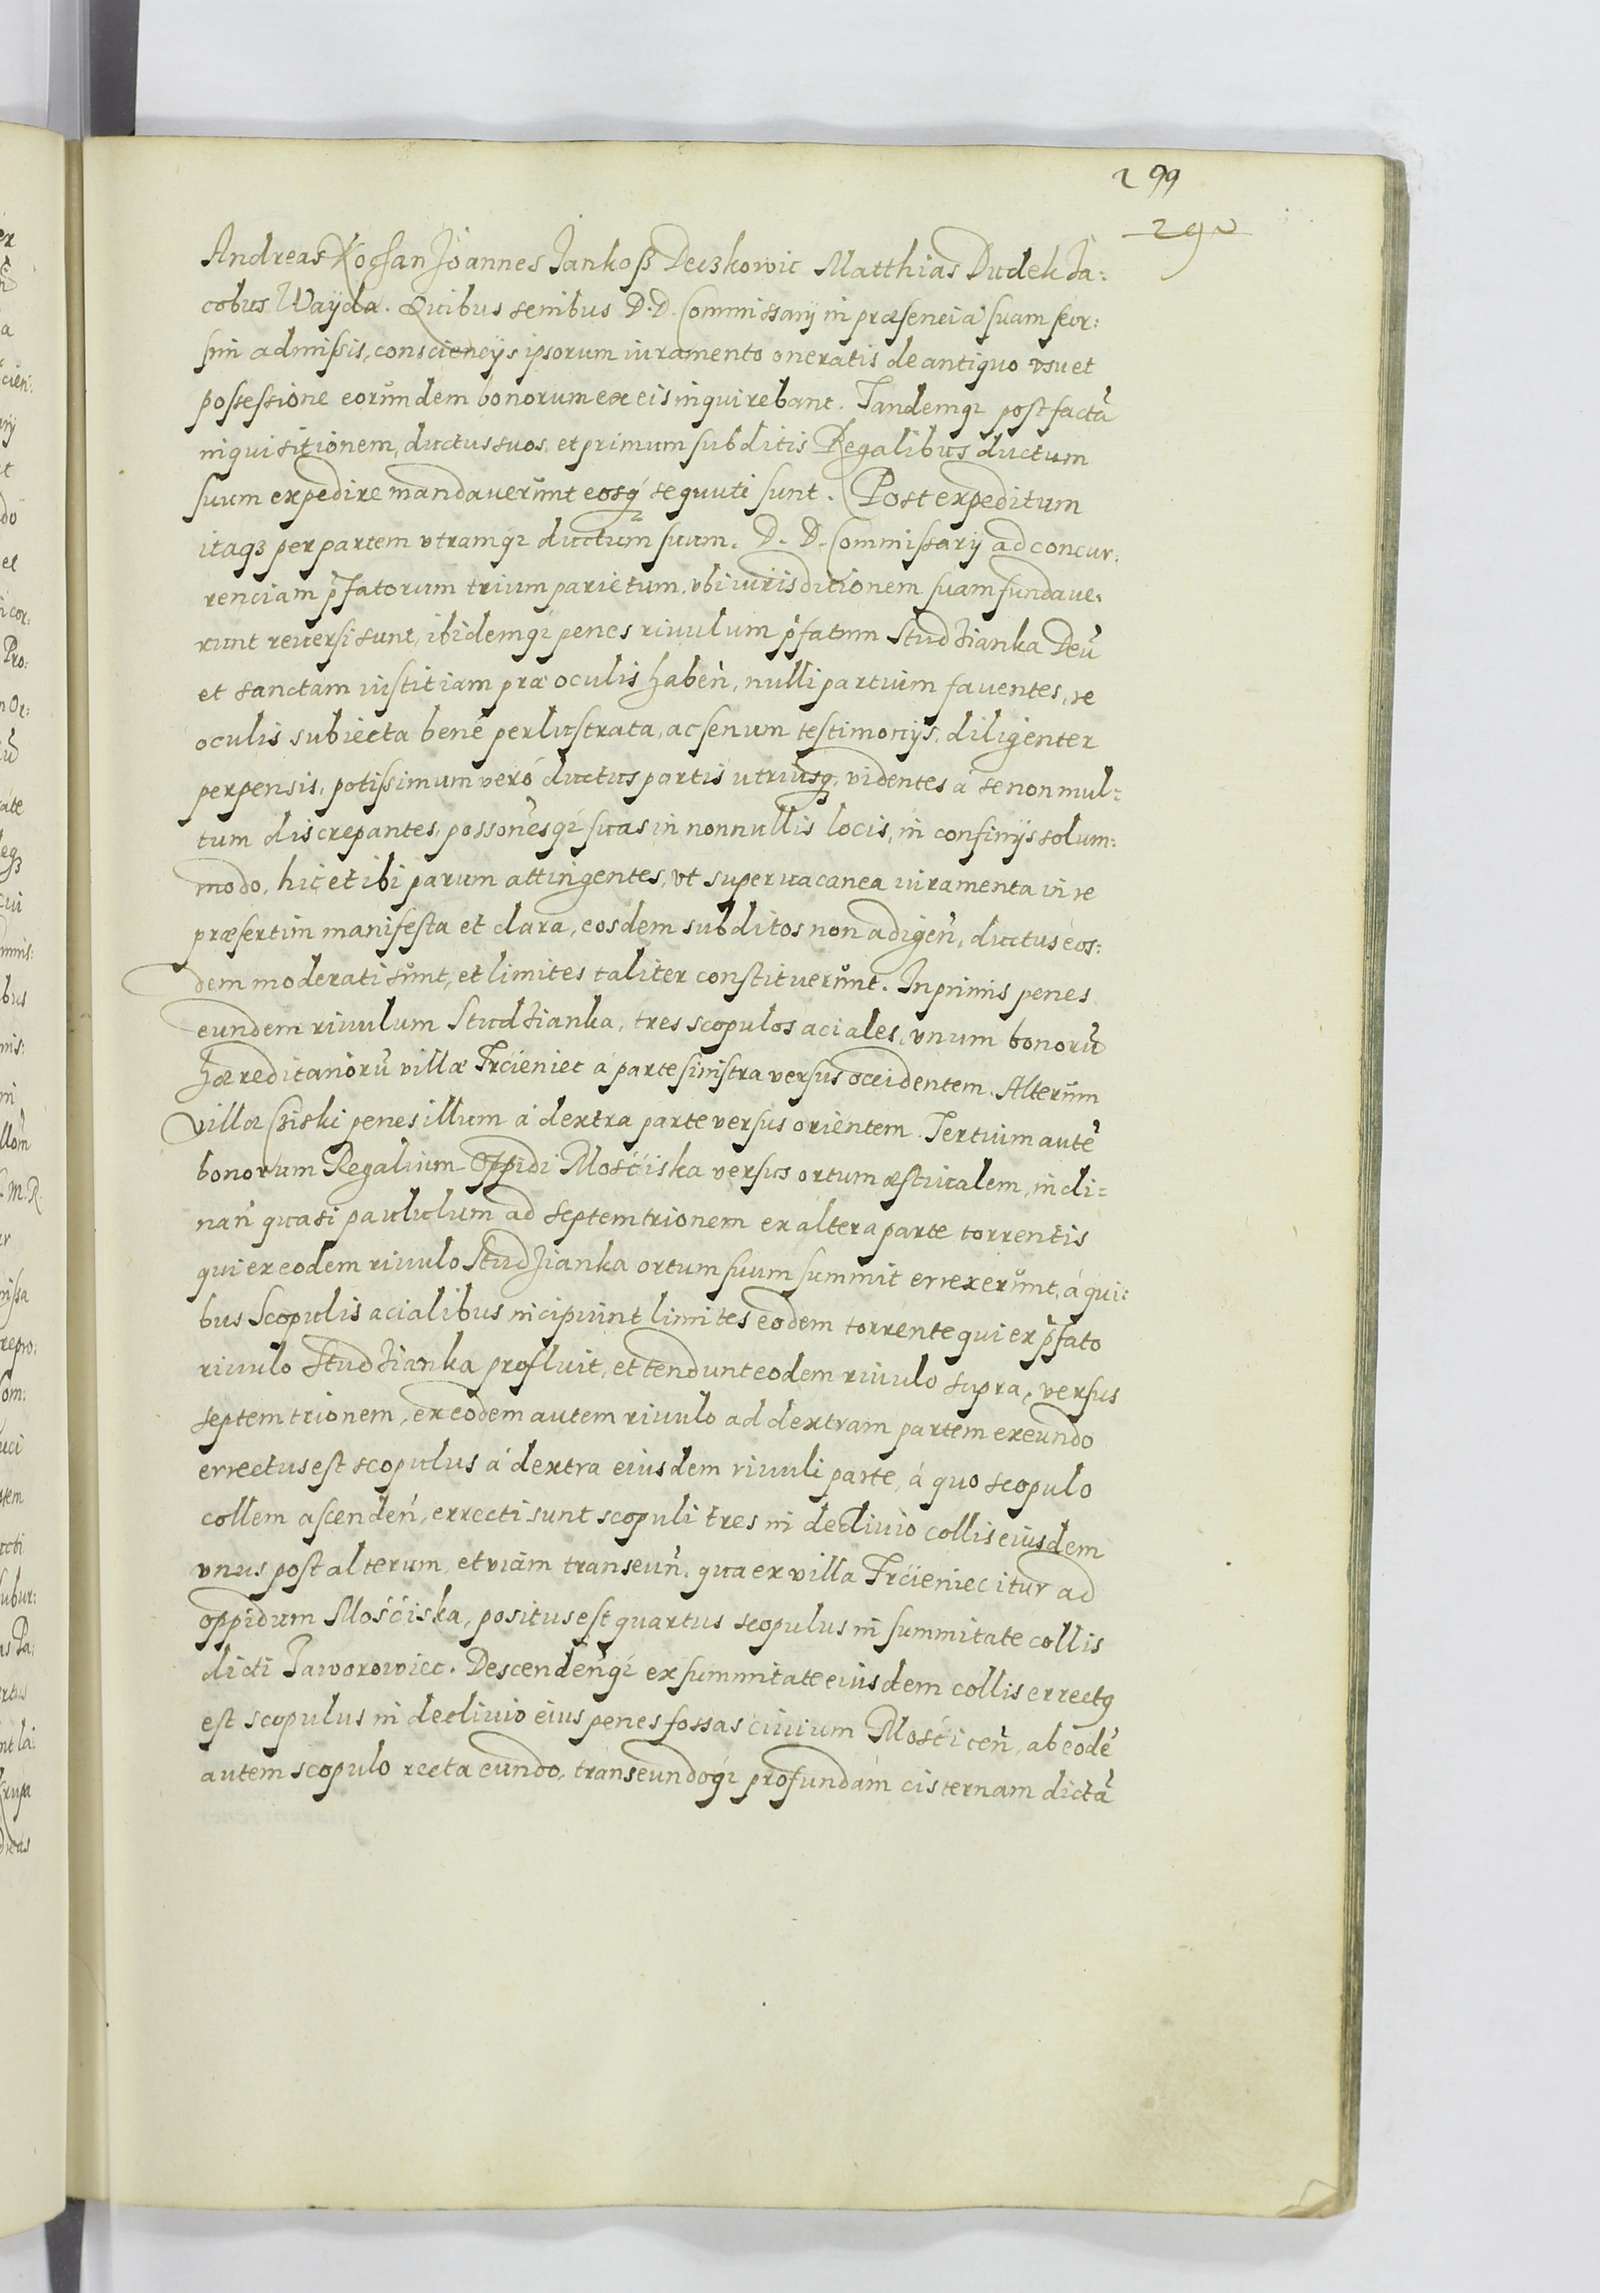 299
290
Andreas Kochan Joannes Jankoß Deczkowic Matthias Dudek Ja:
cobus Wayda. Quibus senibus D. D. Commissarij in præsencia suam seor:
sim admissis, consciencijs ipsorum iuramento oneratis de antiquo vsu et
possessione eorundem bonorum ex eis inquirebant. Tandemq; post factā
inquisitionem, ductus suos, et primum subditis Regalibus ductum
suum expedire mandaverunt eosq́ sequuti sunt. Post expeditum
itaq; per partem vtramq; ductum suum. D. D. Commissarij ad concur:
renciam p̃fatorum trium parietum, vbi iurisditionem suam fundave:
runt reversi sunt, ibidemq; penes rivulum p̃fatum Studzianka Deū
et sanctam iustitiam præ oculis habeñ, nulli partium faventes, re
oculis subiecta bené perlustrata, ac senum testimonijs diligenter
perpensis, potissimum veró ductus partis utriusq, videntes á se non mul=
tum discrepantes, possones̃q; suas in nonnullis locis, in confinijs solum:
modo, hic et ibi parum attingentes, vt supervacanea iuramenta in re
præsertim manifesta et clara, eosdem subditos non adigeñ, ductus eos:
dem moderati sunt, et limites taliter constituerunt. Inprimis penes
eundem rivulum Studzianka, tres scopulos aciales, vnum bonorū
hæreditariorū villæ Trcieniec á parte sinistra versus occidentem. Alterum
villæ Cziski penes illum á dextra parte versus orientem. Tertium autē
bonorum Regalium Oppidi Mościska versus ortum æstivalem, incli=
nañ quasi paululum ad septemtrionem ex altera parte torrentis
qui ex eodem rivulo Studzianka ortum suum summit errexerunt, á qui:
bus Scopulis acialibus incipiunt limites eodem torrente qui ex p̃fato
rivulo Studzianka profluit, et tendunt eodem rivulo supra, versus
septemtrionem, ex eodem autem rivulo ad dextram partem exeundo
errectus est scopulus á dextra eiusdem rivuli parte, á quo scopulo
collem ascendeñ, errecti sunt scopuli tres in declivio collis eiusdem
vnus post alterum, et viam transeuñ, qua ex villa Trcieniec itur ad
oppidum Mościska, positus est quartus scopulus in summitate collis
dicti Jaworowiec. Descendeñq; ex summitate eiusdem collis errectq
est scopulus in declivio eius penes fossas civium Mościceñ, ab eodē
autem scopulo recta eundo, transeundoq; profundam cisternam dictā